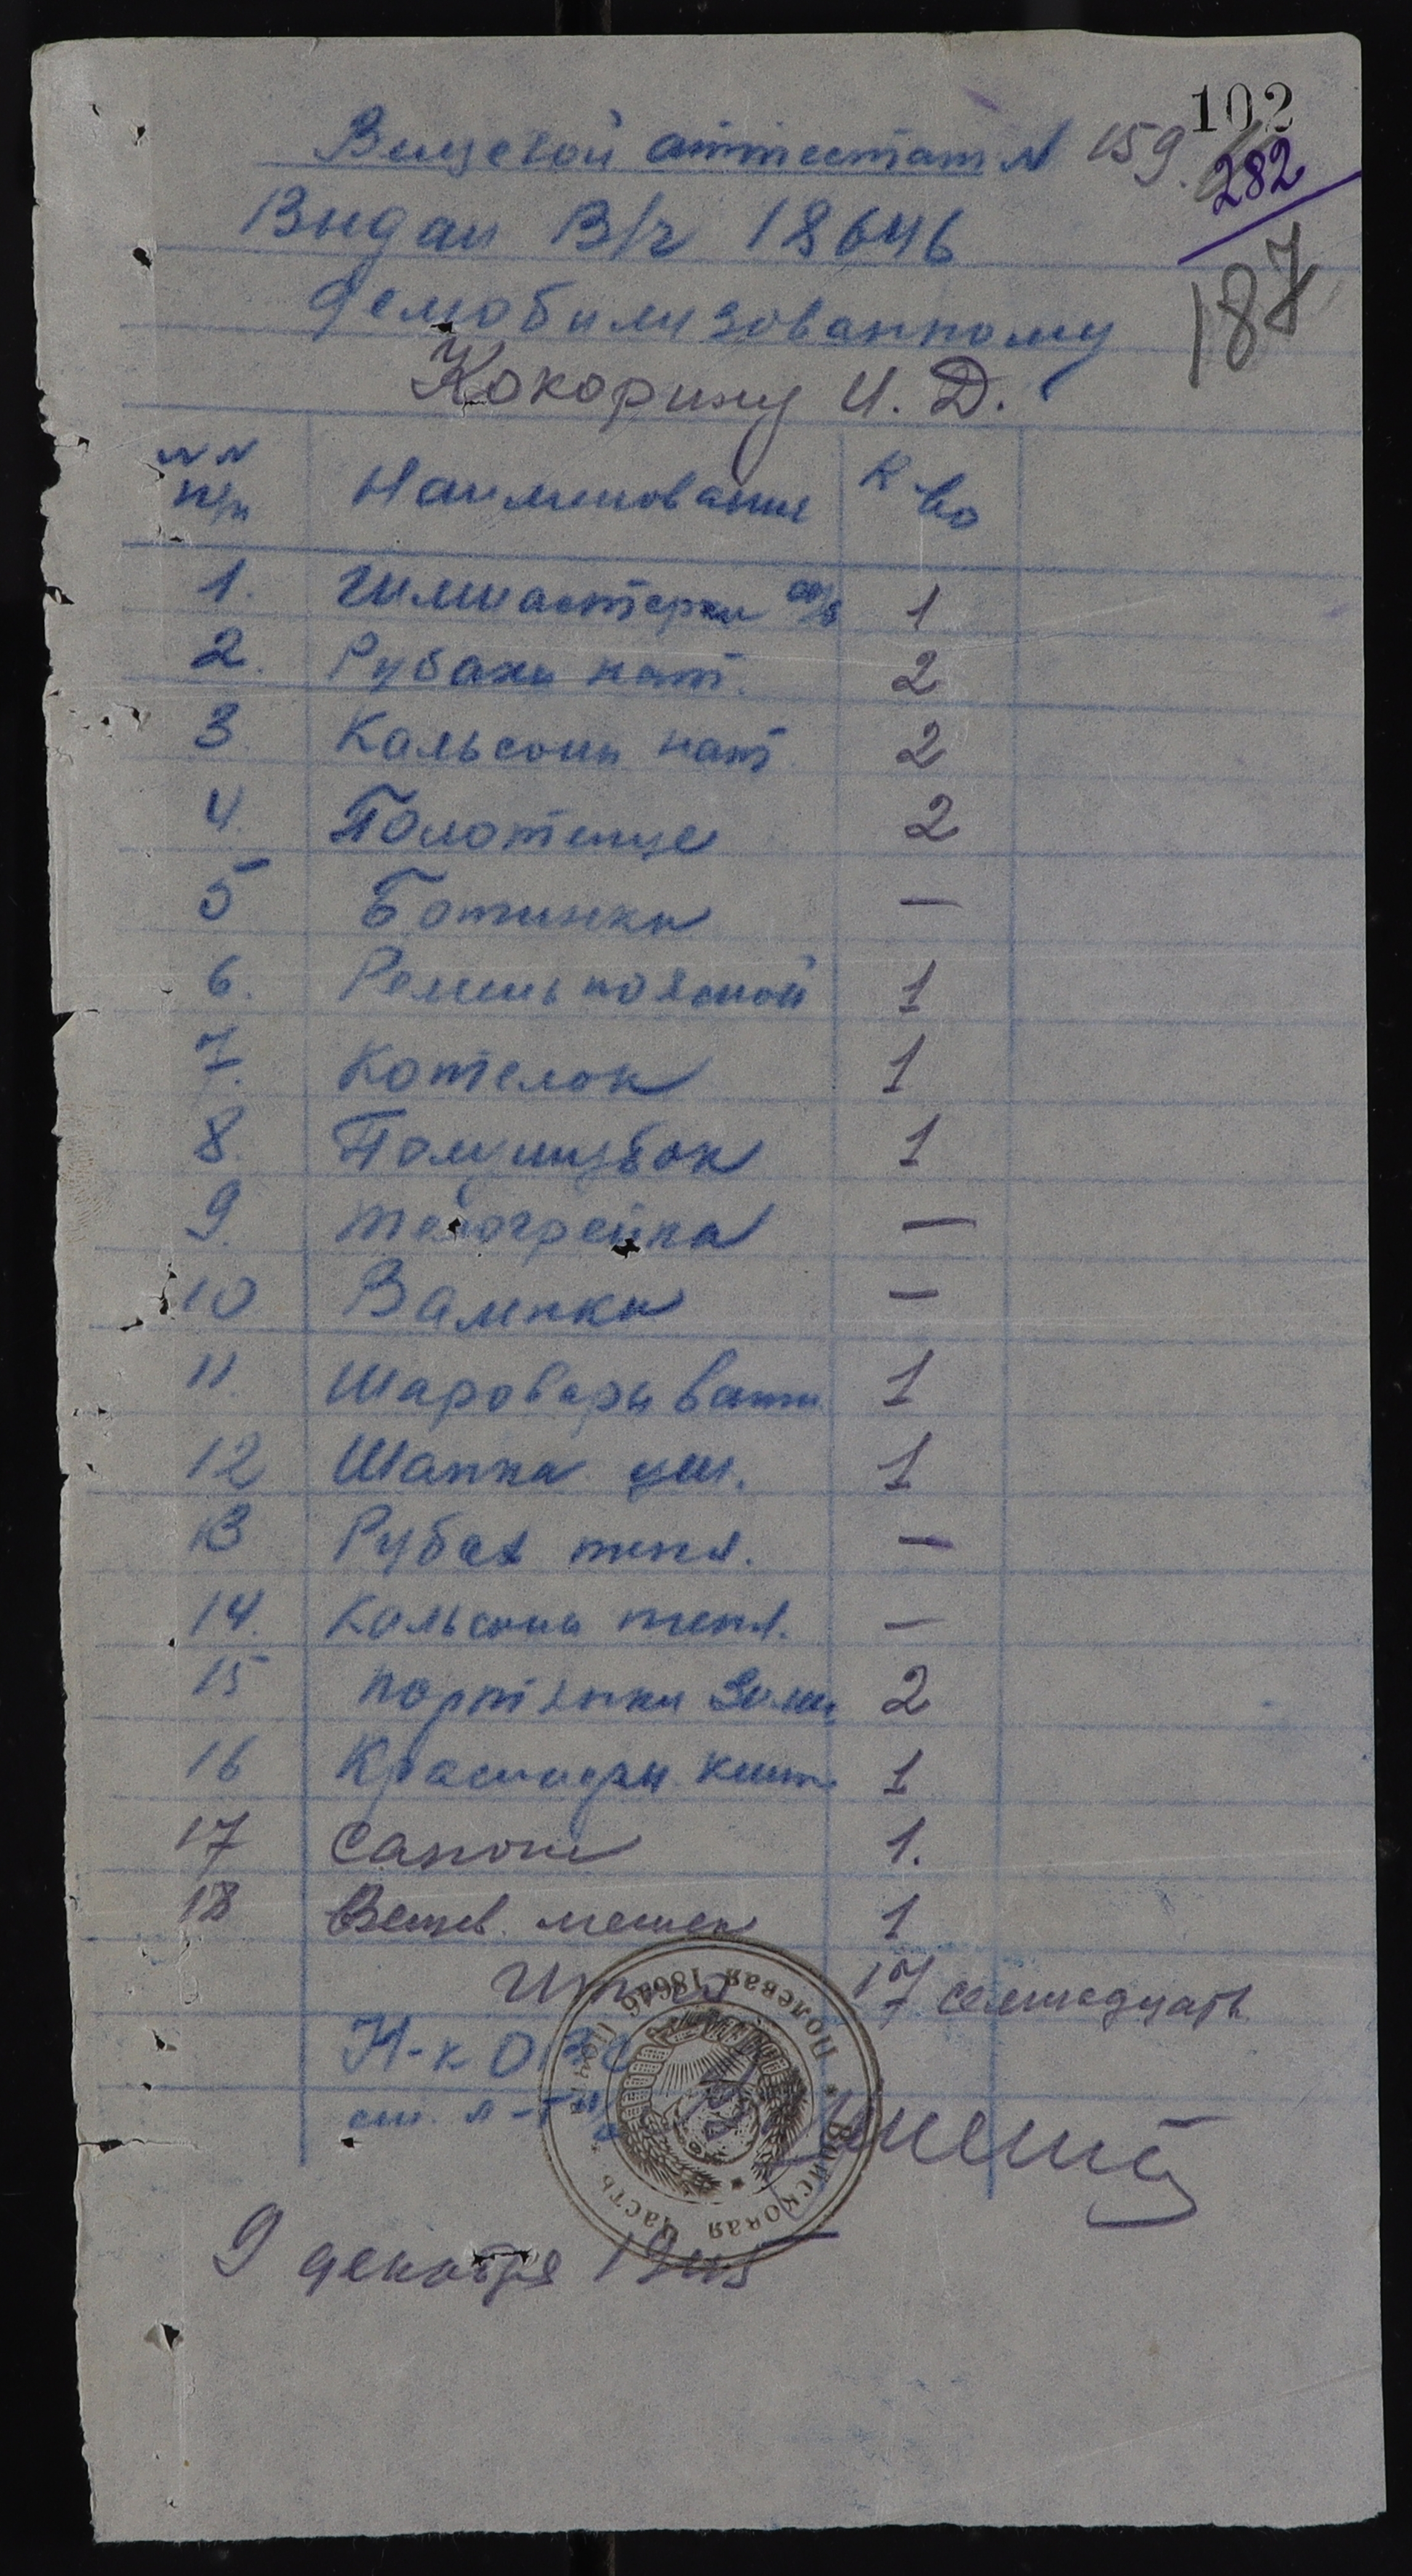 102
Вещевой аттестат № 159.
282
Выдан В/ч 18646
187
демобилизованному
Кокорину И. Д.
№ № п/п Наименования К-во
1. Гимнастерка х/б 1
2. Рубахи нат. 2
3 Кальсоны нат 2
4. Полотенце 2
5 Ботинки —
6. Ремень поясной 1
7. Котелок 1
8. Полушубок 1
9. Телогрейка —
10 Валенки —
11. Шаровары ватн. 1
12 Шапка уш. 1
13 Рубах тепл. —
14. Кальсоны тепл. —
15 Портянки зимн 2
16 1
17 Сапоги 1.
18 Вещев. мешек 1
Итого 17 семнадцать
Н-к ОВС
ст. л-т а/с
Войсковая часть * Полевая почта 18646 *
9 декабря 1945